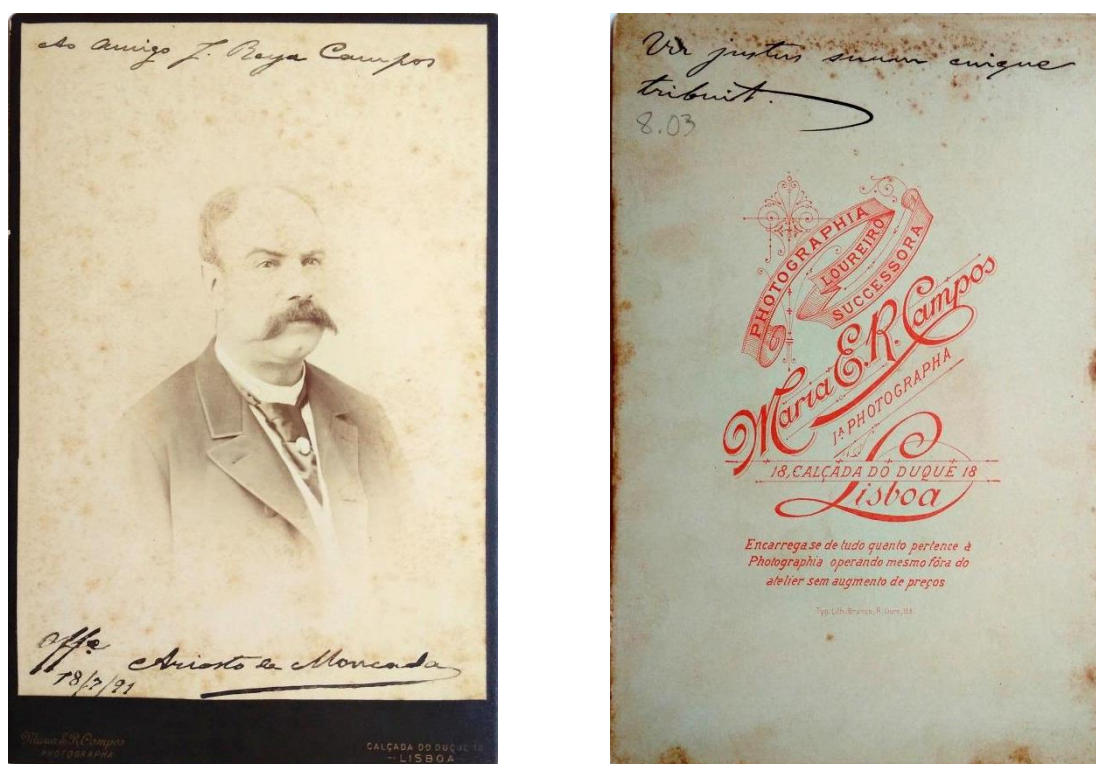 Ao Amigo J. Reya Campos
Offe
18/7/91
Ariosto de Moncada
Maria E.R. Campos
PHOTOGRAPHA
CALÇADA DO DUQUE 18
LISBOA
Vir justus suum cuique
tribuit.
8.03
PHOTOGRAPHIA
LOUREIRO
SUCCESSORA
Maria E.R. Campos
1ª PHOTOGRAPHA
18, CALÇADA DO DUQUE 18
Lisboa
Encarrega se de tudo quanto pertence à
Photographia operando mesmo fóra do
atelier sem augmento de preços
Typ. Lith. Branco, R. Ouro,